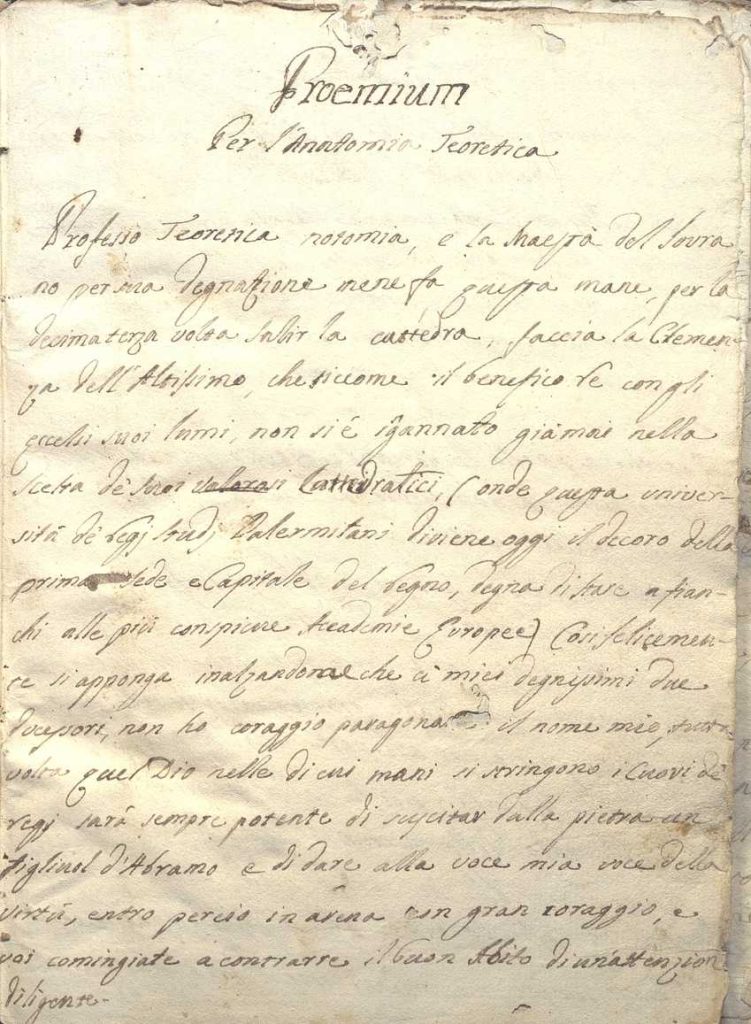 Proemium
Per l'Anatomia Teoretica
Professo Teoretica notomia, e la Maestà del Sovra
no per sua degnazione me ne fa questa mane, per la
decimaterza volta salir la cattedra, faccia la Clemen-
za dell'Altissimo, che siccome il benefico Re con gli
eccelsi suoi lumi, non si é igannato giamai nella
scelta de' suoi valorosi Cattedratici, (onde questa univer-
sitá de' regj studj Palermitani diviene oggi il decoro della
prima sede e Capitale del regno, degna di stare a fian-
chi alle piú conspicue Accademie Europee) Cosi felicemen-
te si apponga inalzandone che á miei degnissimi due
non ho coraggio il nome mio, tutta
volta quel Dio nelle di cui mani si stringono i Cuori de'
regj sará sempre potente di suscitar dalla pietra un
figliuol d'Abramo e di dare alla voce mia voce della
virtú, entro perció in arena con gran coraggio, e
voi comingiate a contrarre il buon Abito di un'attenzion
diligente.